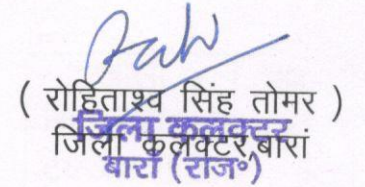 ( रोहिताश्व सिंह तोमर )
जिला कलक्टर,बारां
जिला कलक्टर
बारां (राज॰)